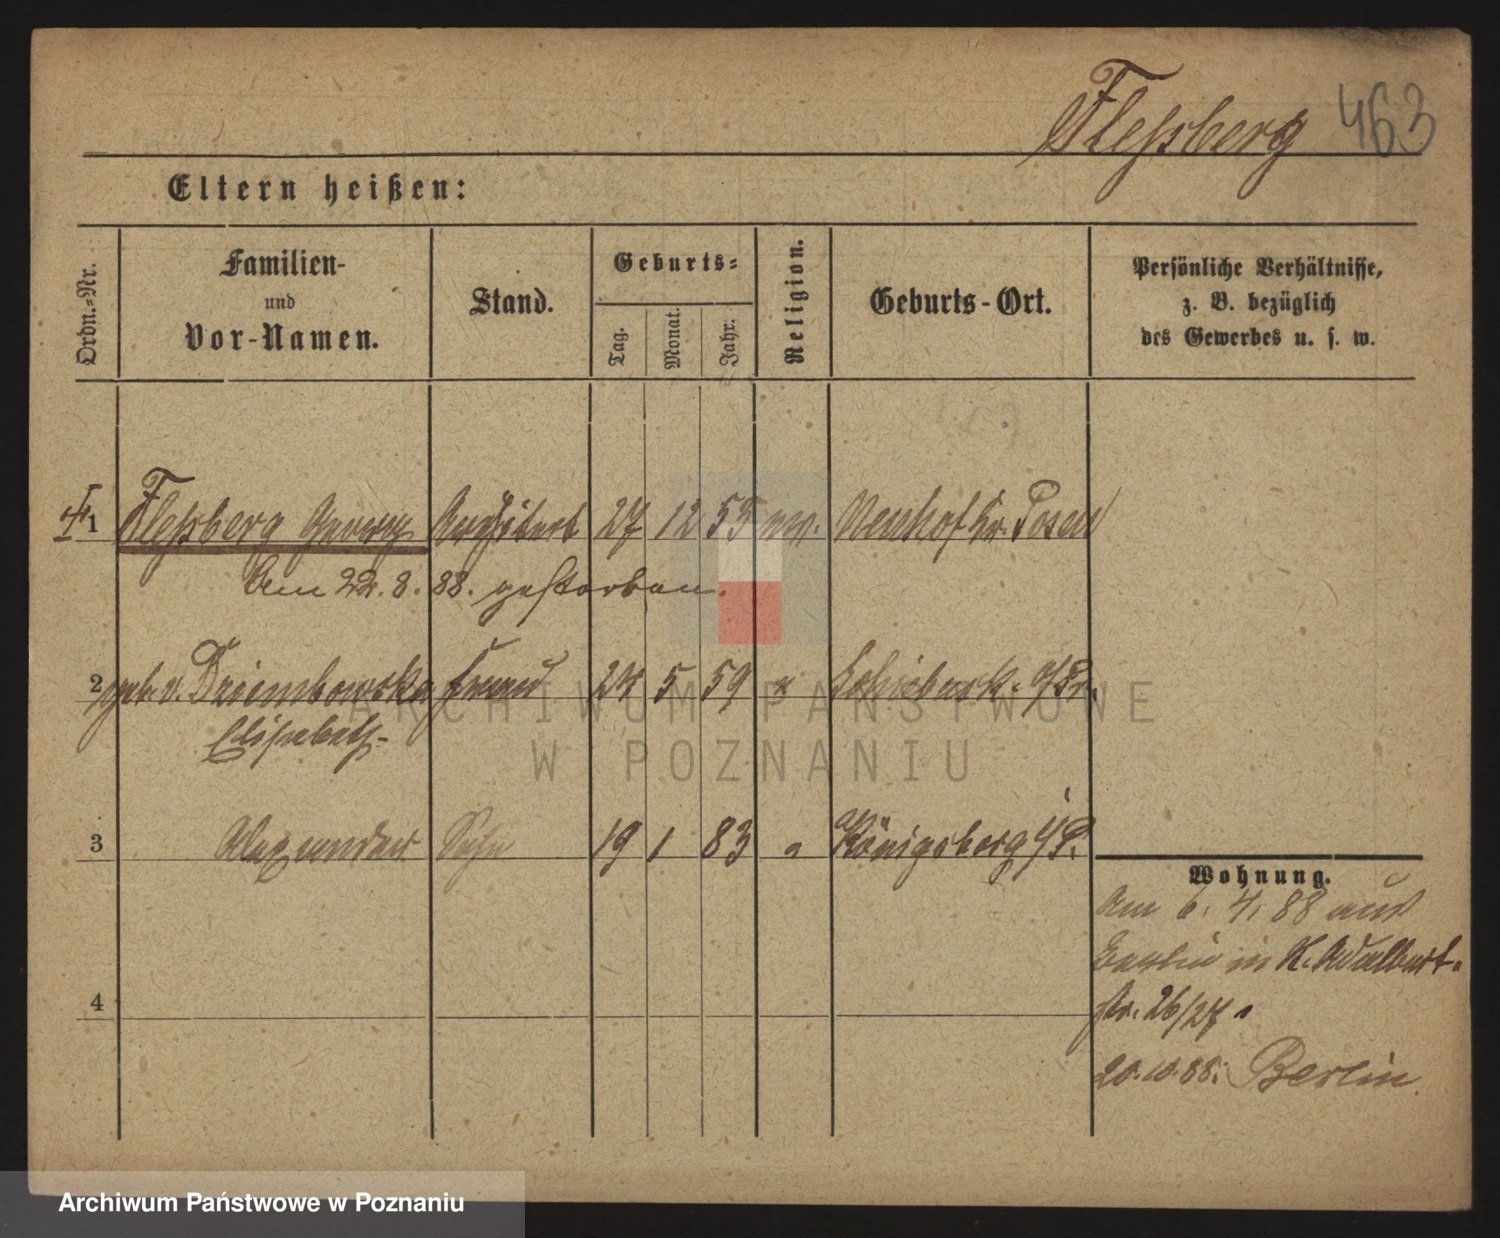 Fleßberg 463
Eltern heißen:
Ordn.-Nr.
Familien-
und
Vor-Namen.
Stand.
Geburts-
Tag.
Monat.
Jahr.
Religion.
Geburts-Ort.
Persönliche Verhältnisse,
z. B. bezüglich
des Gewerbes u. s. w.
1 Fleßberg Georg Architekt 27 12 55 ev. Neuhof Kr. Posen
Am 22. 8. 88. gestorben.
2 geb. v. Dziembowska Frau 24 5 59
Elisabeth
3 Alexander Sohn 19 1 83 " Königsberg i/P.
4
Wohnung.
Am 6. 4. 88 aus
Berlin in K. Adalbert-
str. 26/27.
20.10.88. Berlin
ARCHIWUM PAŃSTWOWE
W POZNANIU
Archiwum Państwowe w Poznaniu